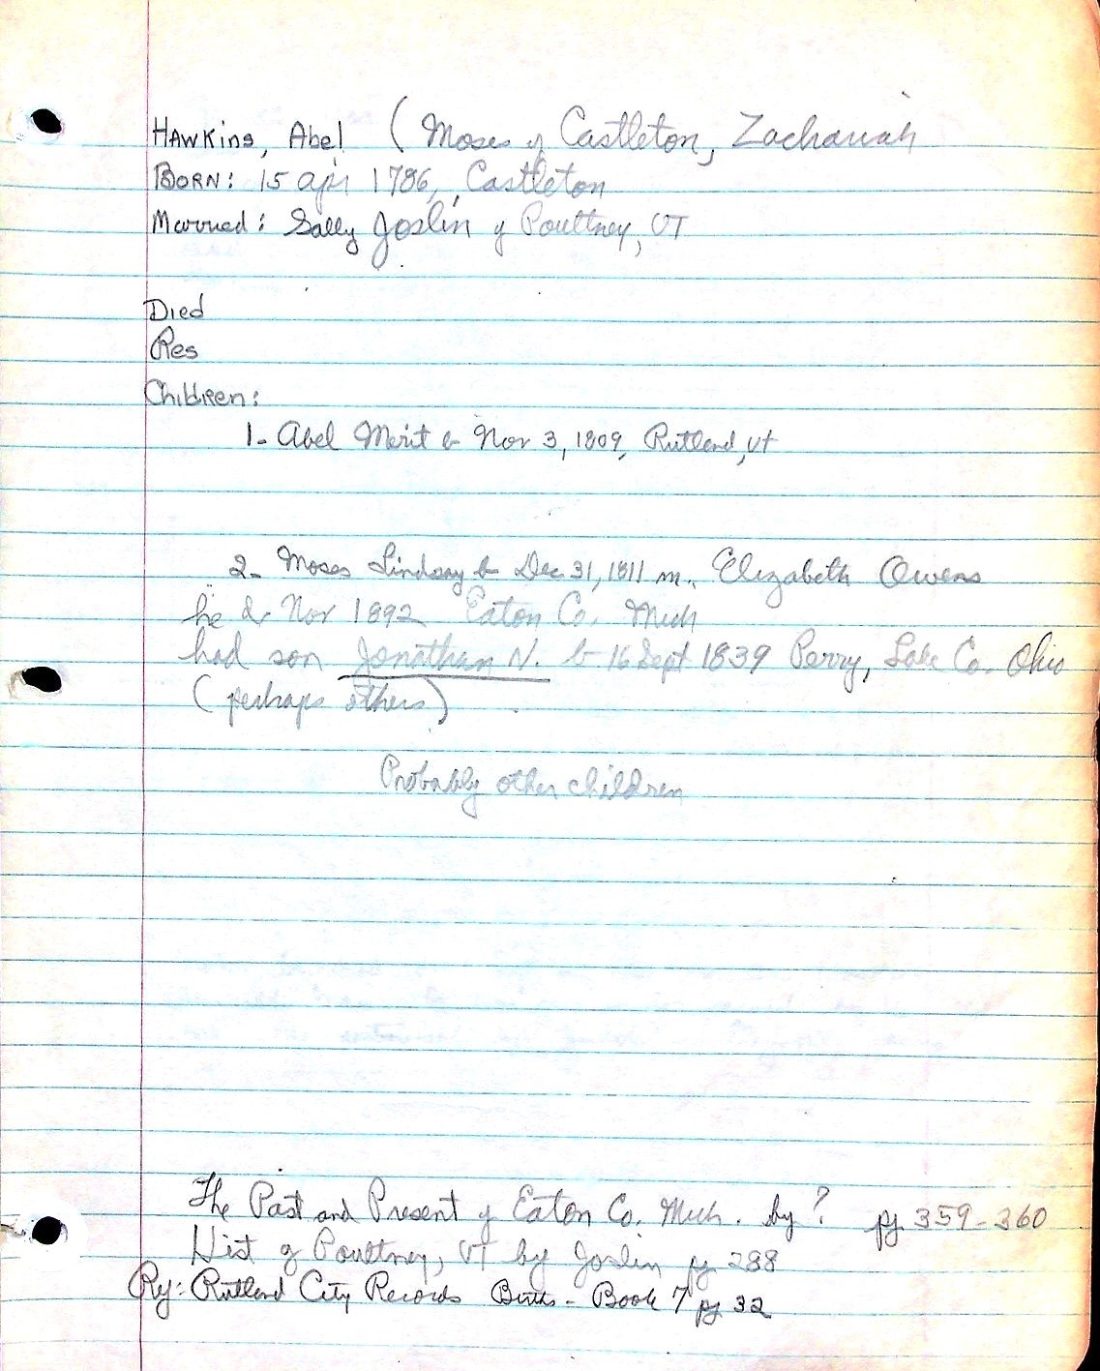 HAWKins, Abel (Moses of Castleton, Zachariah
BORN: 15 apr 1786, Castleton
Married: Sally Joslin of Poultney, VT
Died
Res
ChildRen:
1- Abel Merit b Nov 3, 1809, Rutland, Vt
2- Moses Lindsay b Dec 31, 1811 m. Elizabeth Owens
he d Nov 1892 Eaton Co. Mich
had son Jonathan N. b 16 Sept 1839 Perry, Lake Co. Ohio
(perhaps others)
Probably other children
The Past and Present of Eaton Co. Mich. by? pg 359-360
Hist of Poultney, VT by Joslin pg 288
Rutland City Records Births - Book 7 pg 32